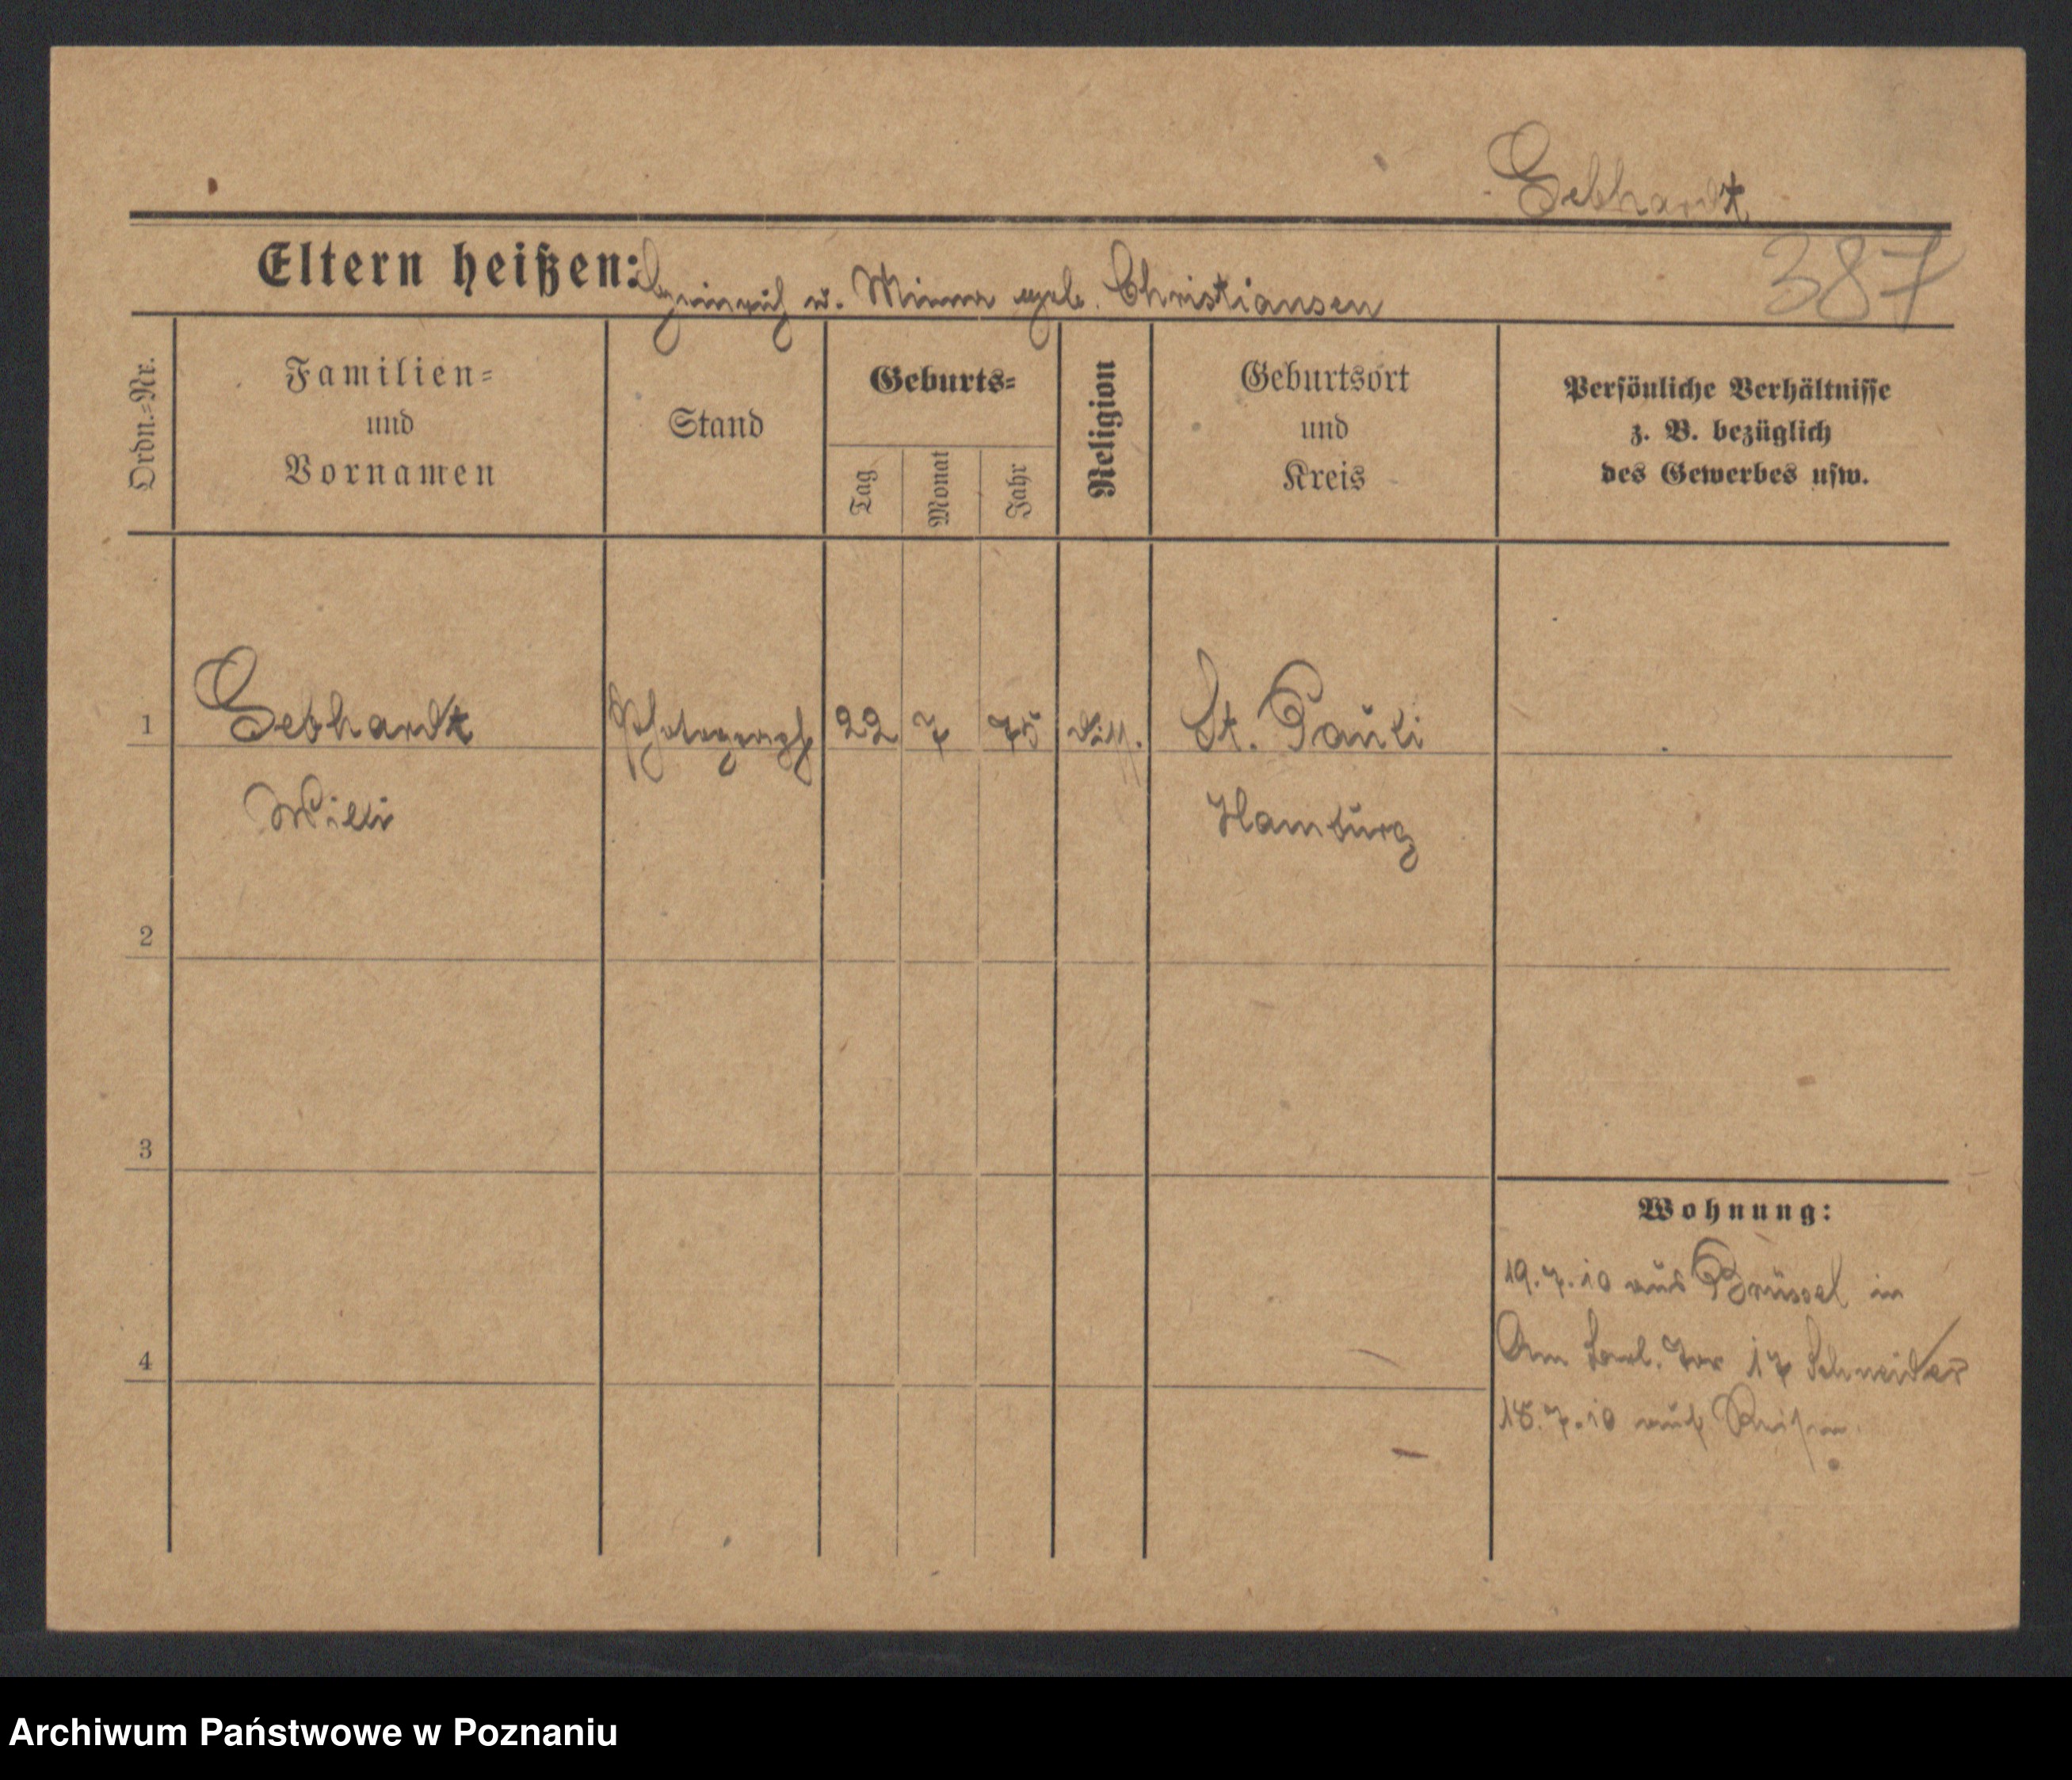 Gebhardt
387
Eltern heißen: Heinrich u. Minna geb. Christiansen
Ordn.=Nr.
Familien=
und
Vornamen
Stand
Geburts=
Tag
Monat
Jahr
Religion
Geburtsort
und
Kreis
Persönliche Verhältnisse
z. B. bezüglich
des Gewerbes usw.
1 Gebhardt Photograph 22 7 75 diss. St. Pauli
Willi Hamburg
2
3
4
Wohnung:
19.7.10 aus Brüssel in
Am Berl. Tor 17 Schneider
18.7.10 auf Reisen
Archiwum Państwowe w Poznaniu